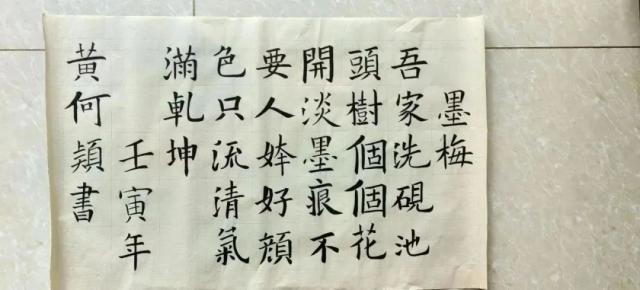 墨梅
吾家洗硯池
頭樹個個花
開淡墨痕不
要人姱好顏
色只流清氣
滿乹坤
壬寅年
黃何穎書